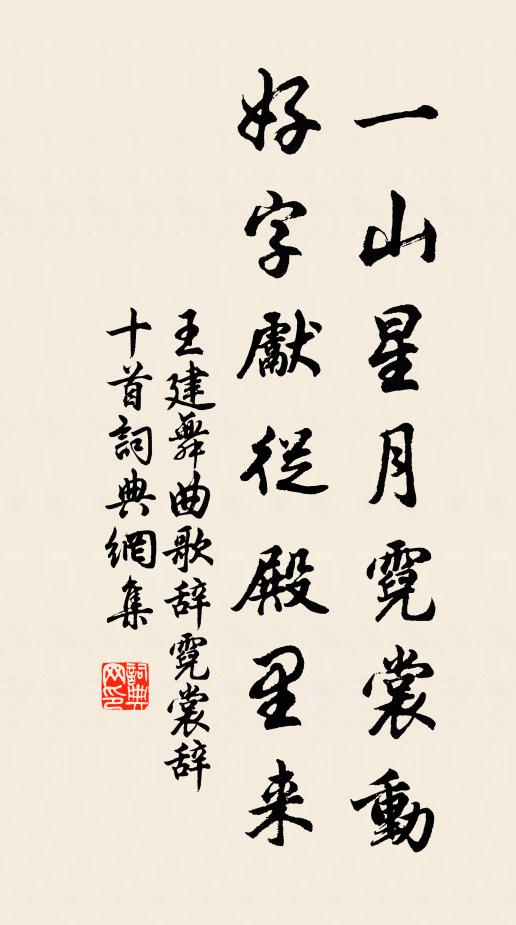 一山星月霓裳動
好字獻從殿里来
王建舞曲歌辞霓裳辞
十首詞典網集
詞典網印